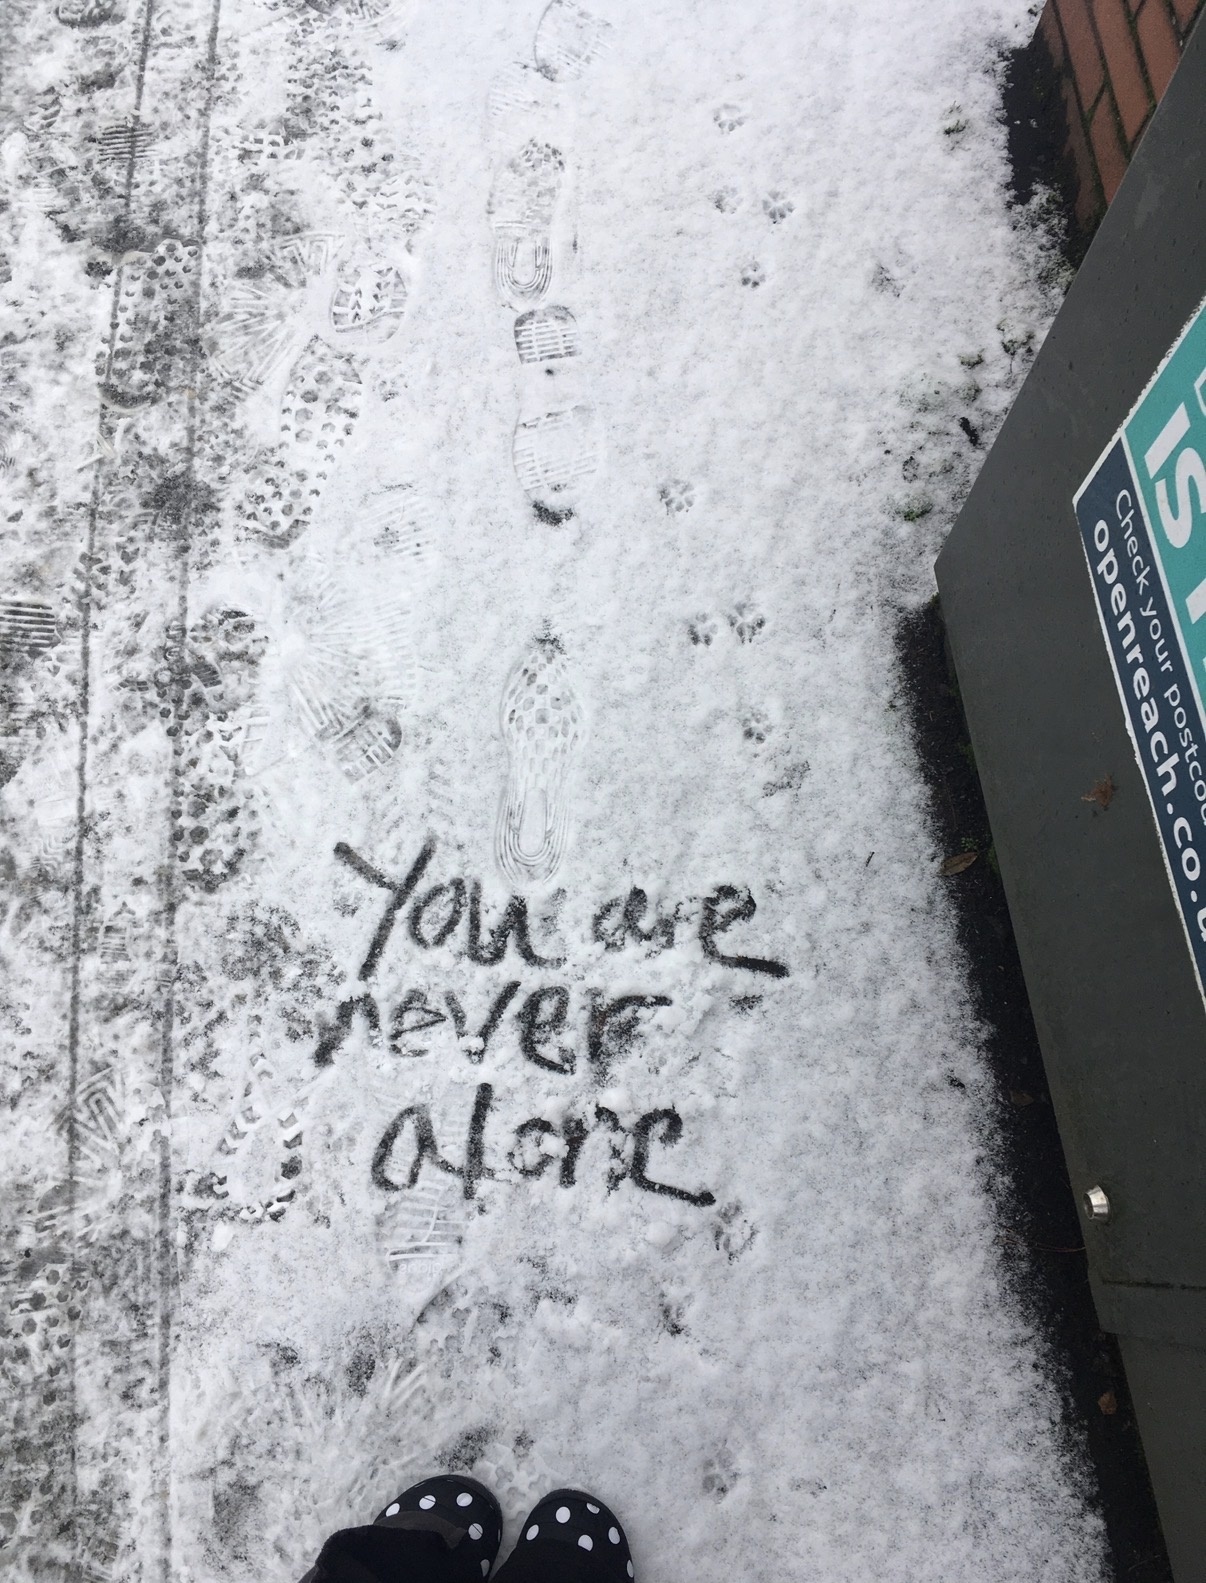 You are
never
alone
IS
Check your postcod
openreach.co.u